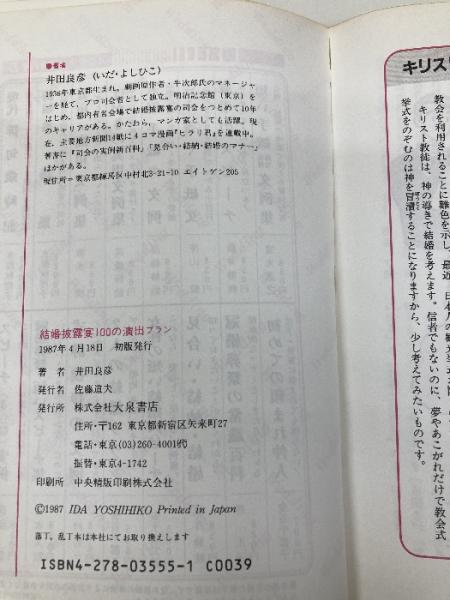 ●著者名
井田良彦（いだ・よしひこ）
1938年東京都生まれ。劇画原作者・牛次郎氏のマネージャ
ーを経て、プロ司会者として独立。明治記念館（東京）を
はじめ、都内有名会場で結婚披露宴の司会をつとめて10年
のキャリアがある。かたわら、マンガ家としても活躍。現
在、主要地方新聞14紙に4コマ漫画『ヒラリ君』を連載中。
著書に『司会の実例新百科』『見合い・結納・結婚のマナー』
ほかがある。
現住所＝東京都練馬区中村北3-21-10 エイトゲン205
結婚披露宴100の演出プラン
1987年4月18日 初版発行
著者 井田良彦
発行名 佐藤道夫
発行所 株式会社大泉書店
住所・〒162 東京都新宿区矢来町27
電話・東京(03)260-4001代
振替・東京4-1742
印刷所 中央精版印刷株式会社
©1987 IDA YOSHIHIKO Printed in Japan
落丁、乱丁本は本社にてお取り換えします
ISBN4-278-03555-1 C0039
キリス
教会を利用されることに難色を示し、最近、日本人の
キリスト教徒は、神の導きで結婚を考えます。信者でもないのに、夢やあこがれだけで教会式
挙式をのぞむのは神を冒瀆することになりますから、少し考えてみたいものです。